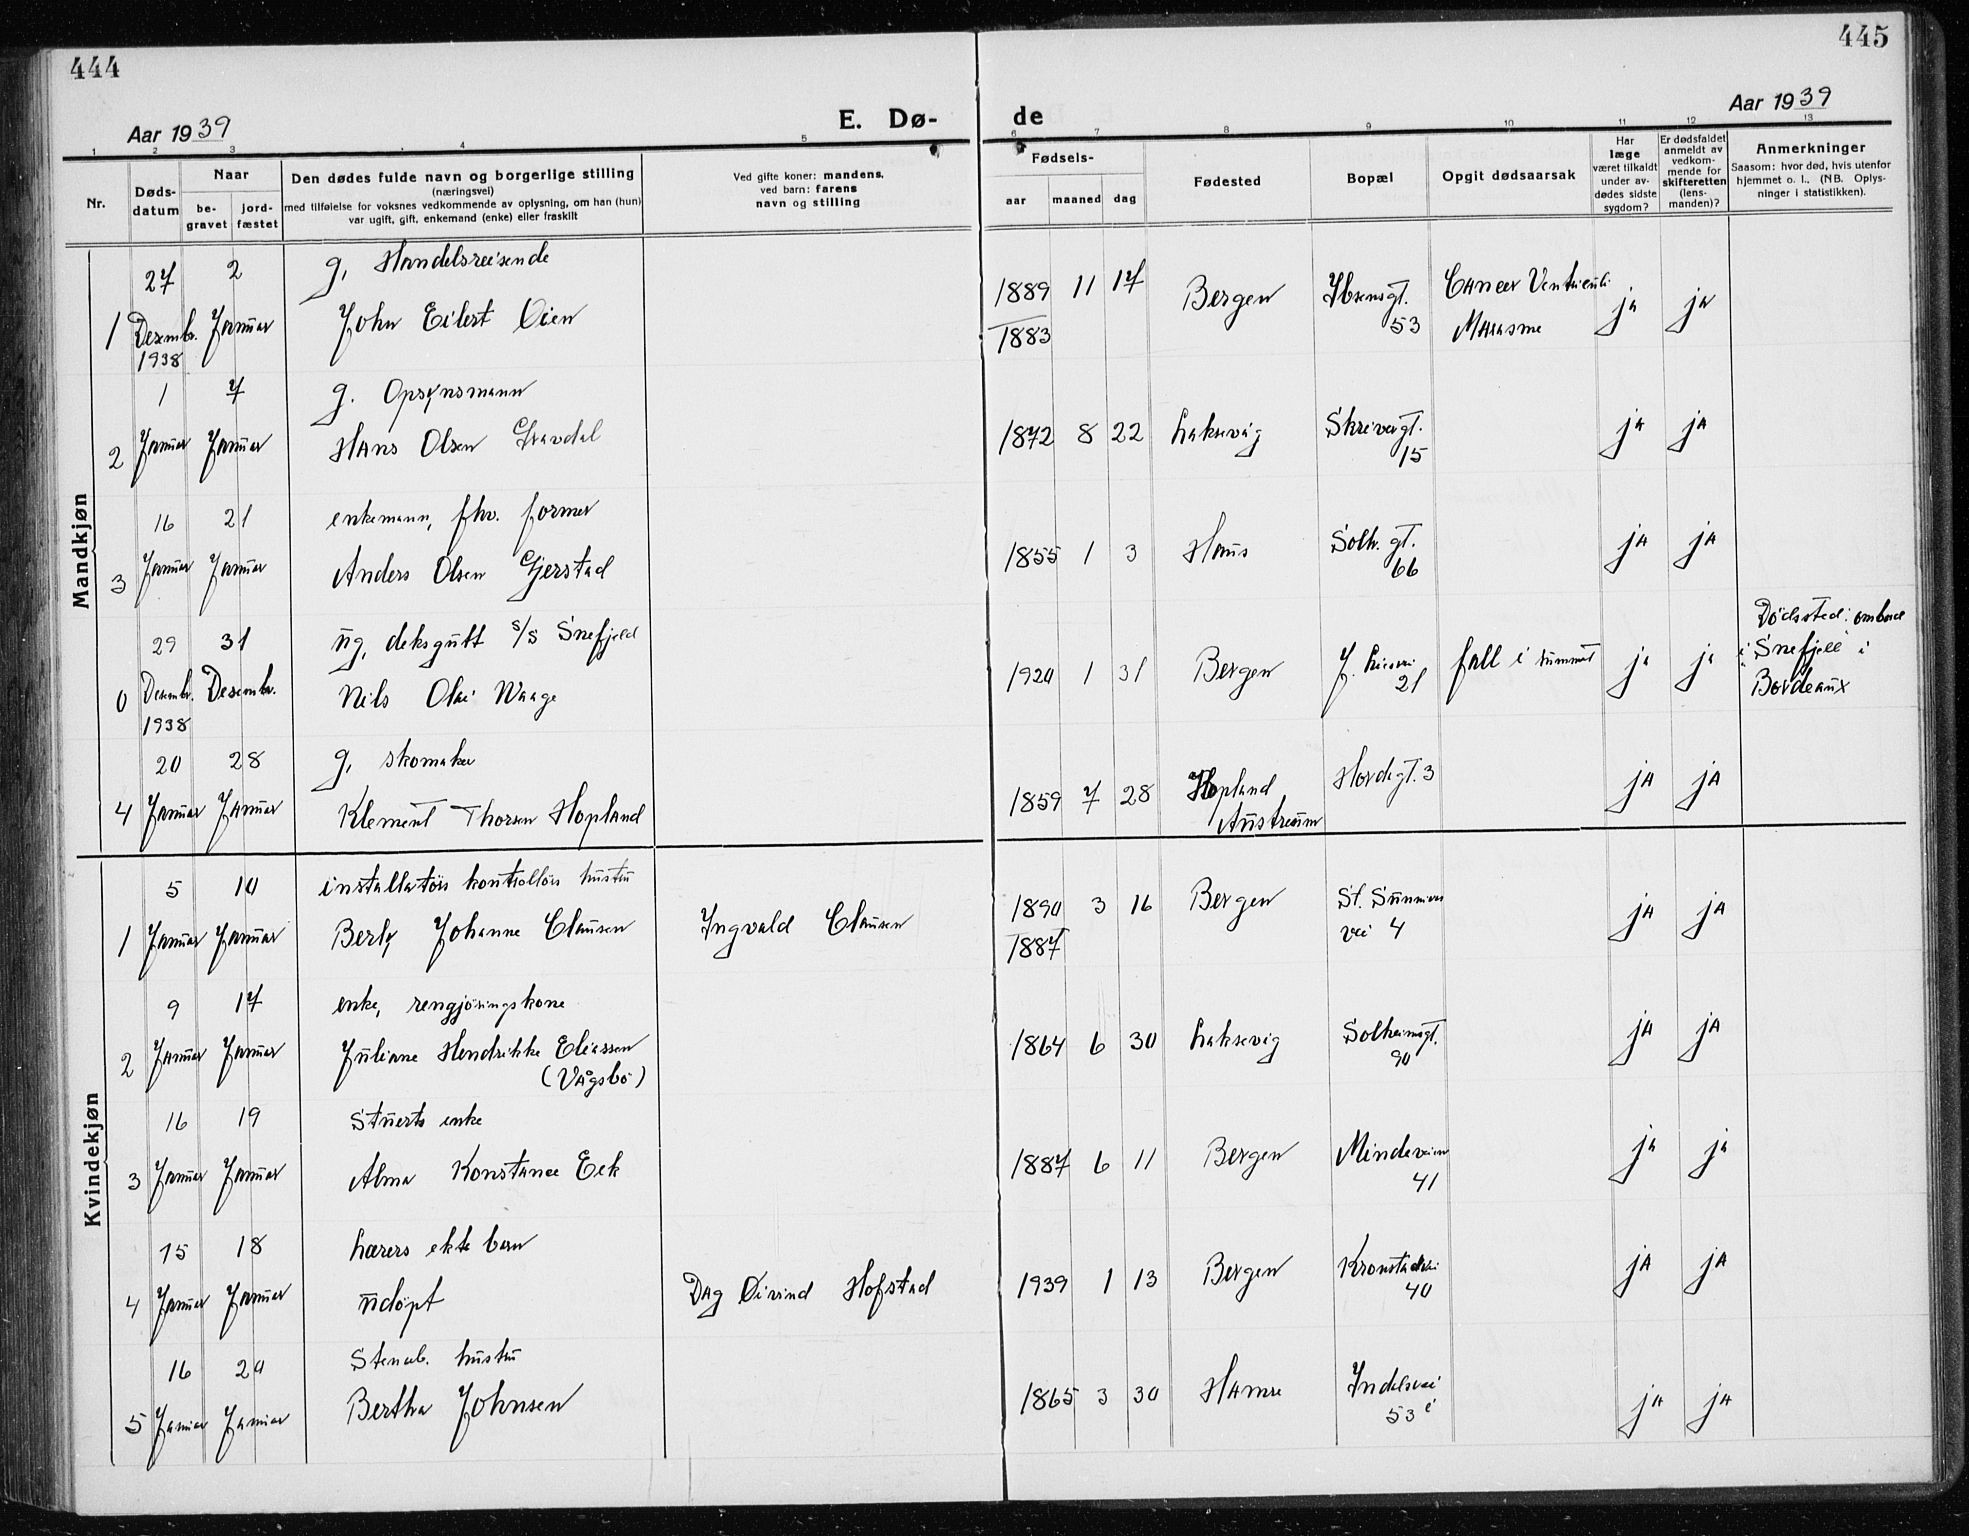 444
445
Aar 1939
E. Dø-
de
Aar 1939
1 2 3 4 5 6 7 8 9 10 11 12 13
Nr.
Døds-
datum
Naar
be-
gravet
jord-
fæstet
Den dødes fulde navn og borgerlige stilling
(næringsvei)
med tilføielse for voksnes vedkommende av oplysning, om han (hun)
var ugift, gift, enkemand (enke) eller fraskilt
Ved gifte koner: mandens,
ved barn: farens
navn og stilling
Fødsels-
aar
maaned
dag
Fødested
Bopæl
Opgit dødsaarsak
Har
læge
været tilkaldt
under av-
dødes sidste
sygdom?
Er dødsfaldet
anmeldt av
vedkom-
mende for
skifteretten
(lens-
manden)?
Anmerkninger
Saasom: hvor død, hvis utenfor
hjemmet o. l., (NB. Oplys-
ninger i statistikken).
Mandkjøn
27 2 g, Handelsreisende
1889 11 17 Bergen Ibsensgt. Cancer Ventriculi ja ja
1 Desembr. Januar John Eilert Oien
1883 53 Marasme
1938
1 7 g. Opsynsmann
2 Januar Januar Hans Olsen Gravdal
1872 8 22 Laksevåg Skrivergt. ja ja
15
16 21 enkemann, fhv. former
3 Januar Januar Anders Olsen Gjerstad
1855 1 3 Haus Solh. gt. ja ja
66
29 31 ug, deksgutt s/s Snefjeld
0 Desembr. Desembr. Nils Olai Waage
1938
1920 1 31 Bergen 21 fall i rummet ja ja
Dødssted: ombord
i "Snefjell" i
Bordeaux
20 28 g, skomaker
4 Januar Januar Klement Thorsen Hopland
1859 7 28 Hopland Hordagt. 3 ja ja
Austrheim
Kvindekjøn
5 10 installatørs kontrollørs hustru
1 Januar Januar Berly Johanne Clausen Ingvald Clausen
1890 3 16 Bergen St. Sunnivas ja ja
1887 vei 4
9 17 enke, rengjøringskone
2 Januar Januar Juliane Hendrikke Eliassen
(Vågsbø)
1864 6 30 Laksevåg Solheimsgt. ja ja
90
16 19 Stuerts enke
3 Januar Januar Alma Konstance Eek
1887 6 11 Bergen Mindeveien ja ja
41
15 18 Lærers ekte barn
4 Januar Januar udøpt Dag Øivind Hofstad
1939 1 13 Bergen Kronstadvei ja ja
40
16 20 Stenarb. hustru
5 Januar Januar Bertha Johnsen
1865 3 30 Hamre Indelvei ja ja
53